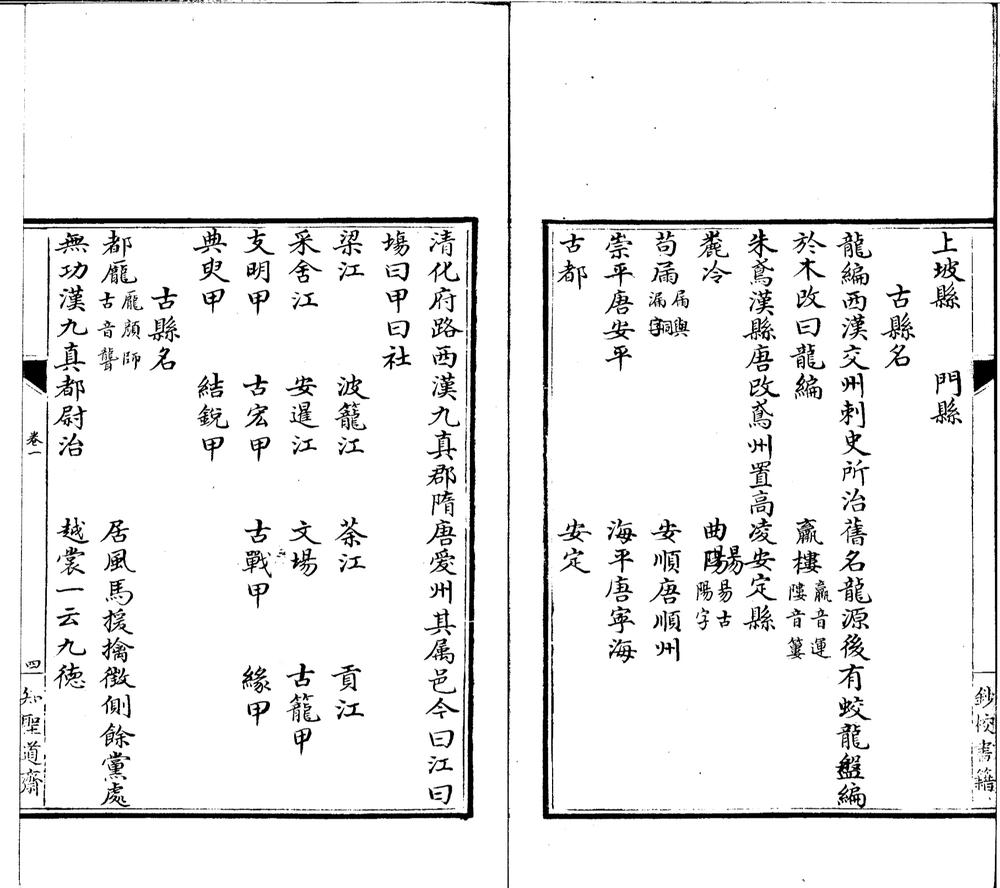 上坡縣　門縣
古縣名
龍編西漢交州刺史所治舊名龍源後有蛟龍盤編
於木改曰龍編　羸𨻻羸音運𨻻音簍
朱鳶漢縣唐改鳶州置高凌安定縣
麊冷　曲昜昜古陽字
苟屚屚與漏字同　安順唐順州
崇平唐安平　海平唐寧海
古都　安定
鈔校書籍
清化府路西漢九真郡隋唐愛州其属邑今曰江曰
塲曰甲曰社
梁江　波籠江　茶江　貢江
采舍江　安暹江　文場　古籠甲
支明甲　古宏甲　古戰甲　緣甲
典史甲　結銳甲
古縣名
都龐龐顏師古音龔　居風馬援擒徵側餘黨處
無功漢九真都尉治　越裳一云九德
卷一
四
知聖道齋